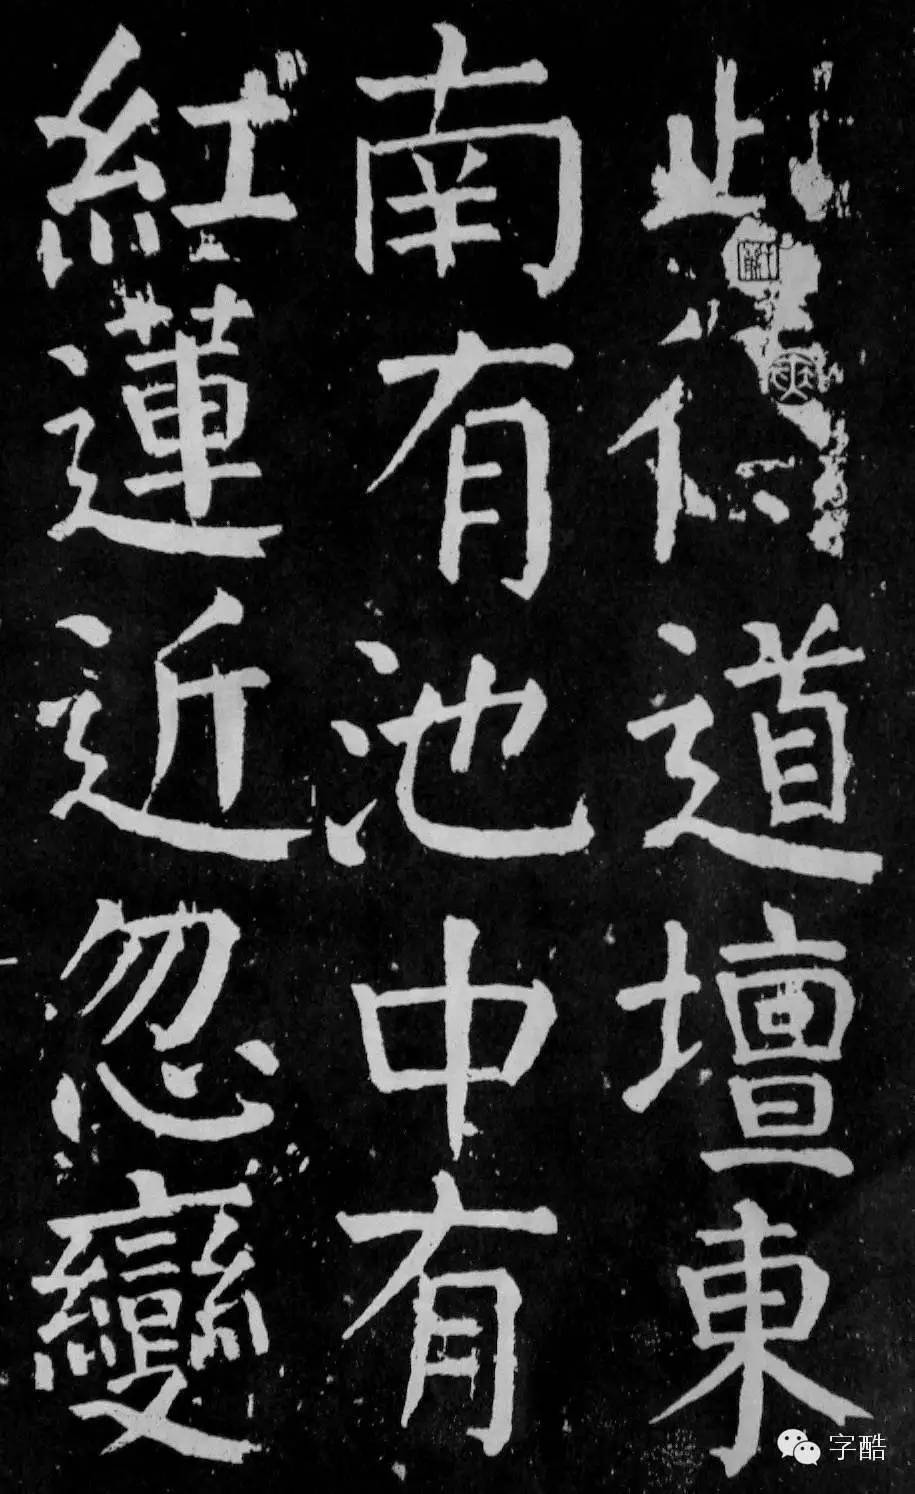 此得道壇東
南有池中有
紅蓮近忽變
字酷